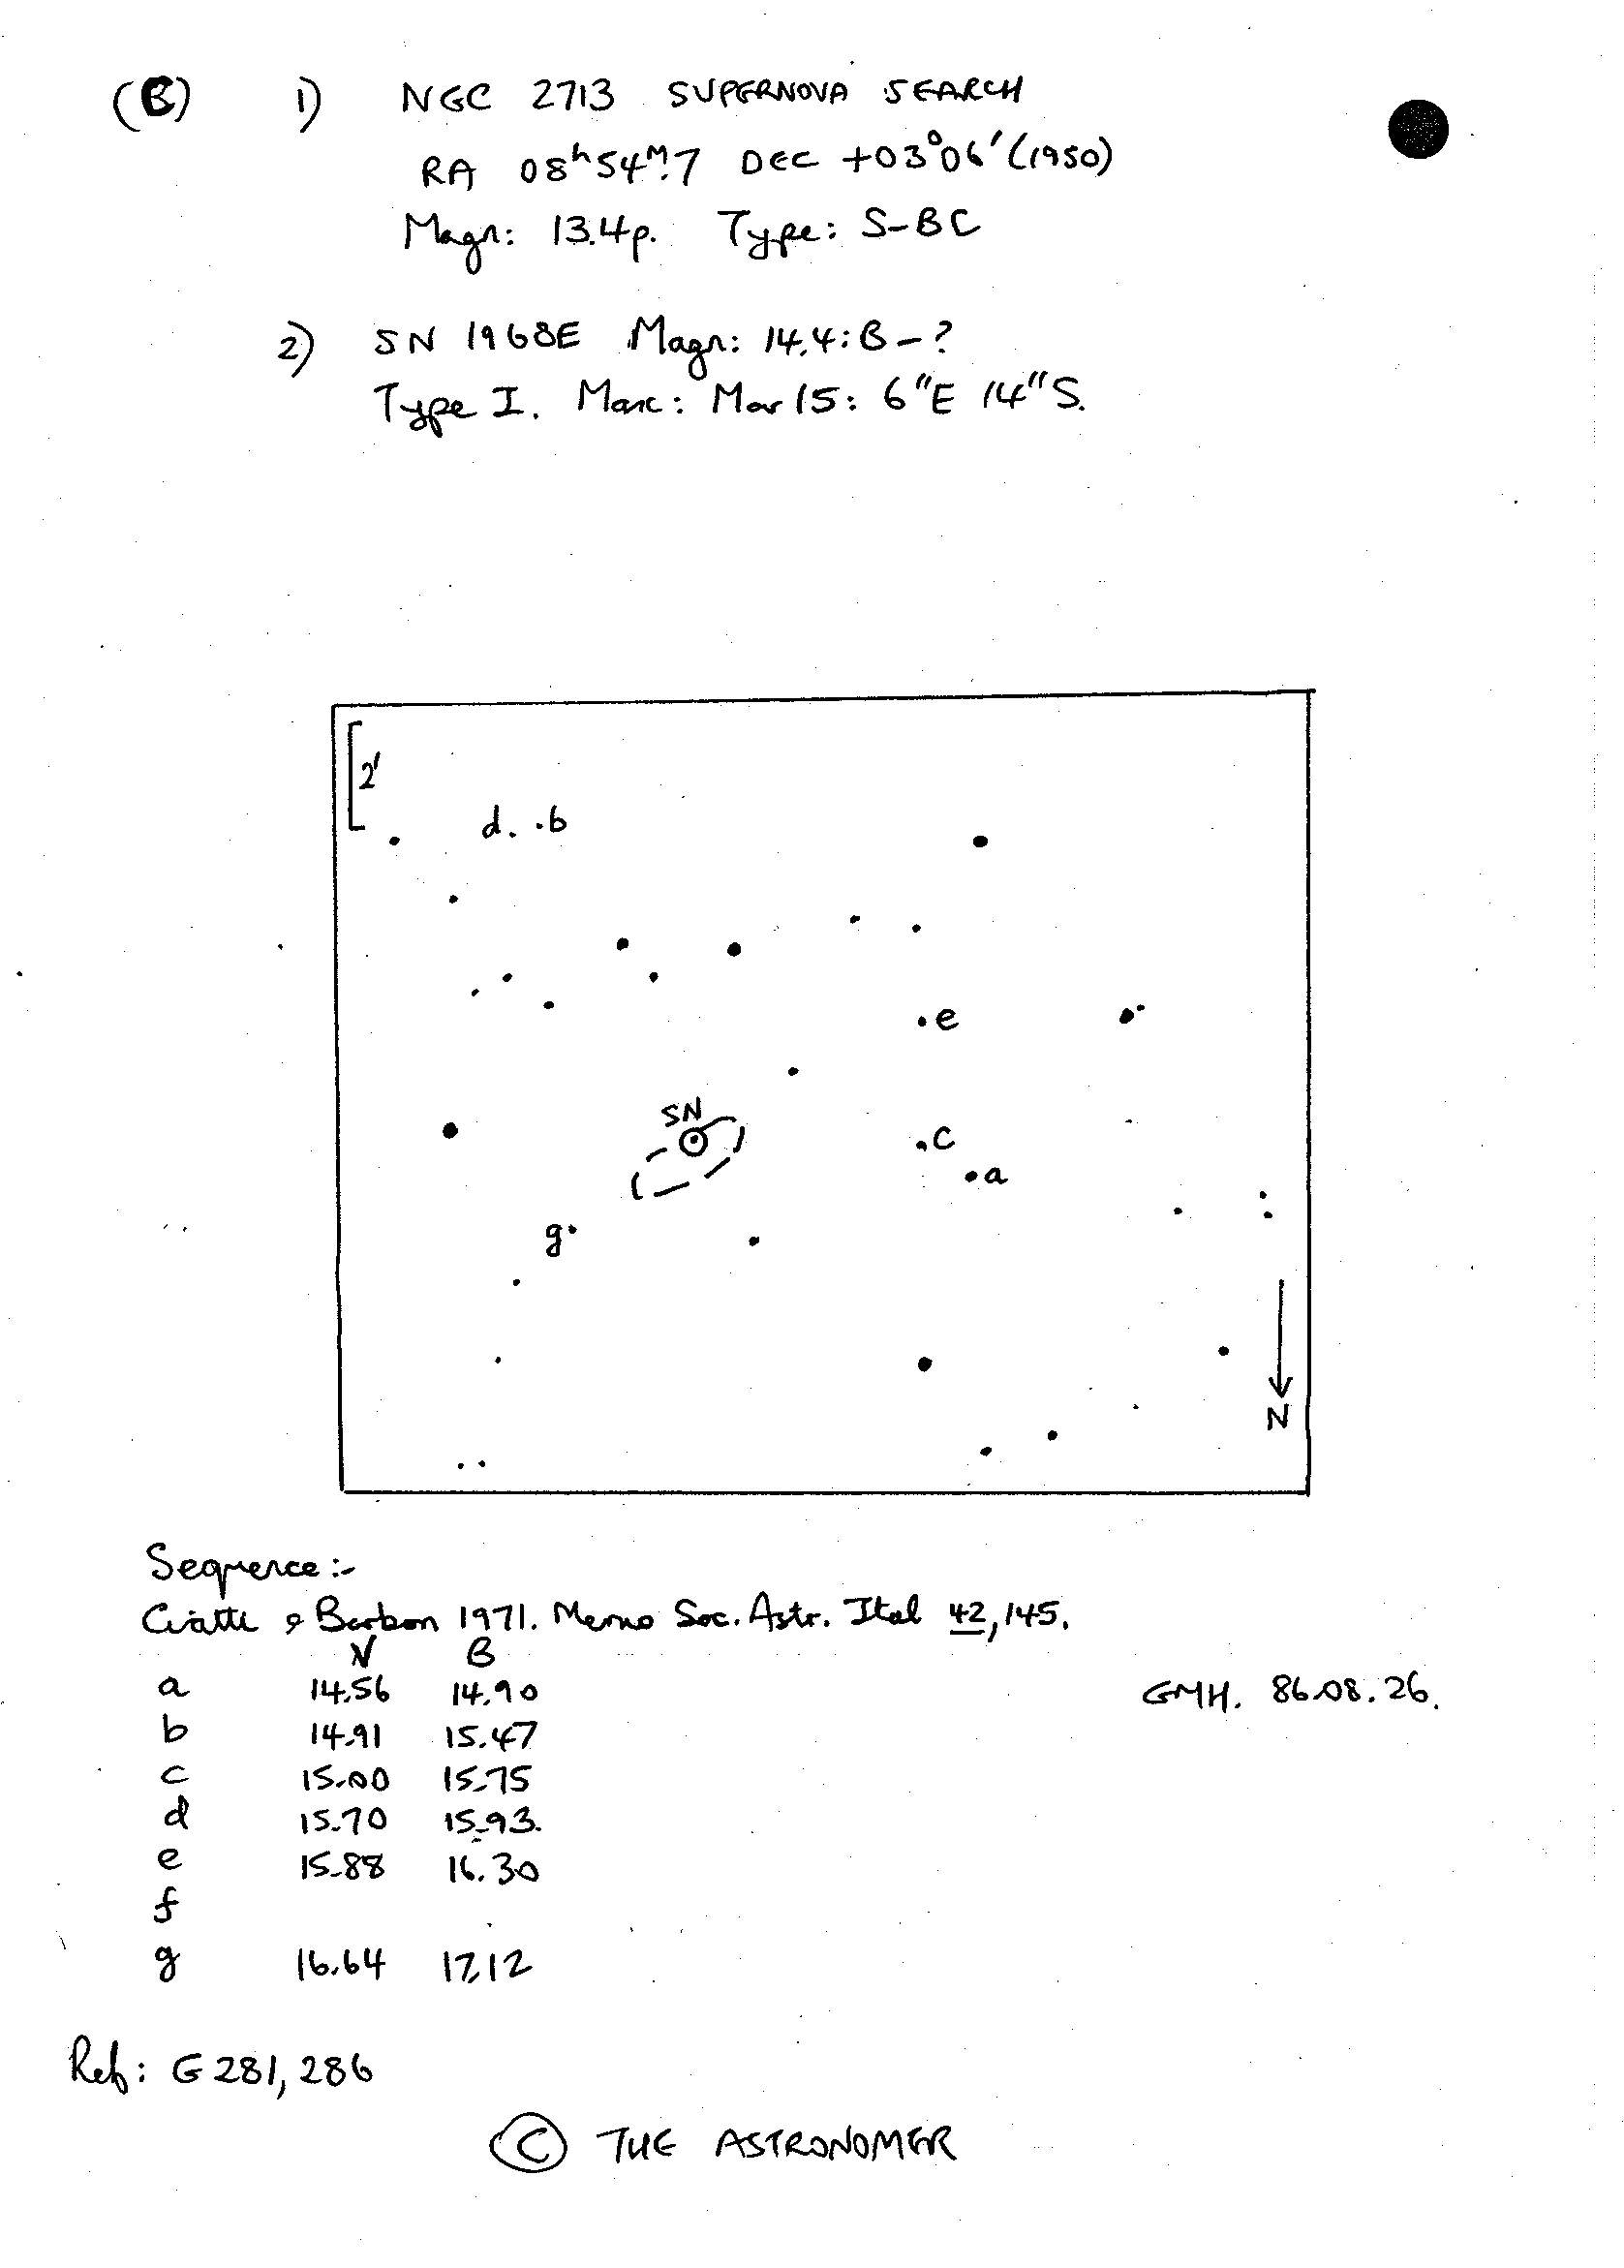 (B) 1) NGC 2713 SUPERNOVA SEARCH
RA 08ʰ54ᴹ.7 DEC +03°06′ (1950)
Magn: 13.4p. Type: S-BC
2) SN 1968E Magn: 14.4:B-?
Type I. Max: Mar 15: 6"E 14"S.
2'
d b
e
SN
c
a
g
N
Sequence:-
Ciatti & Barbon 1971. Memo Soc. Astr. Ital 42, 145.
V B
a 14.56 14.90
GMH. 86.08.26.
b 14.91 15.47
c 15.00 15.75
d 15.70 15.93.
e 15.88 16.30
f
g 16.64 17.12
Ref: G 281, 286
© THE ASTRONOMER